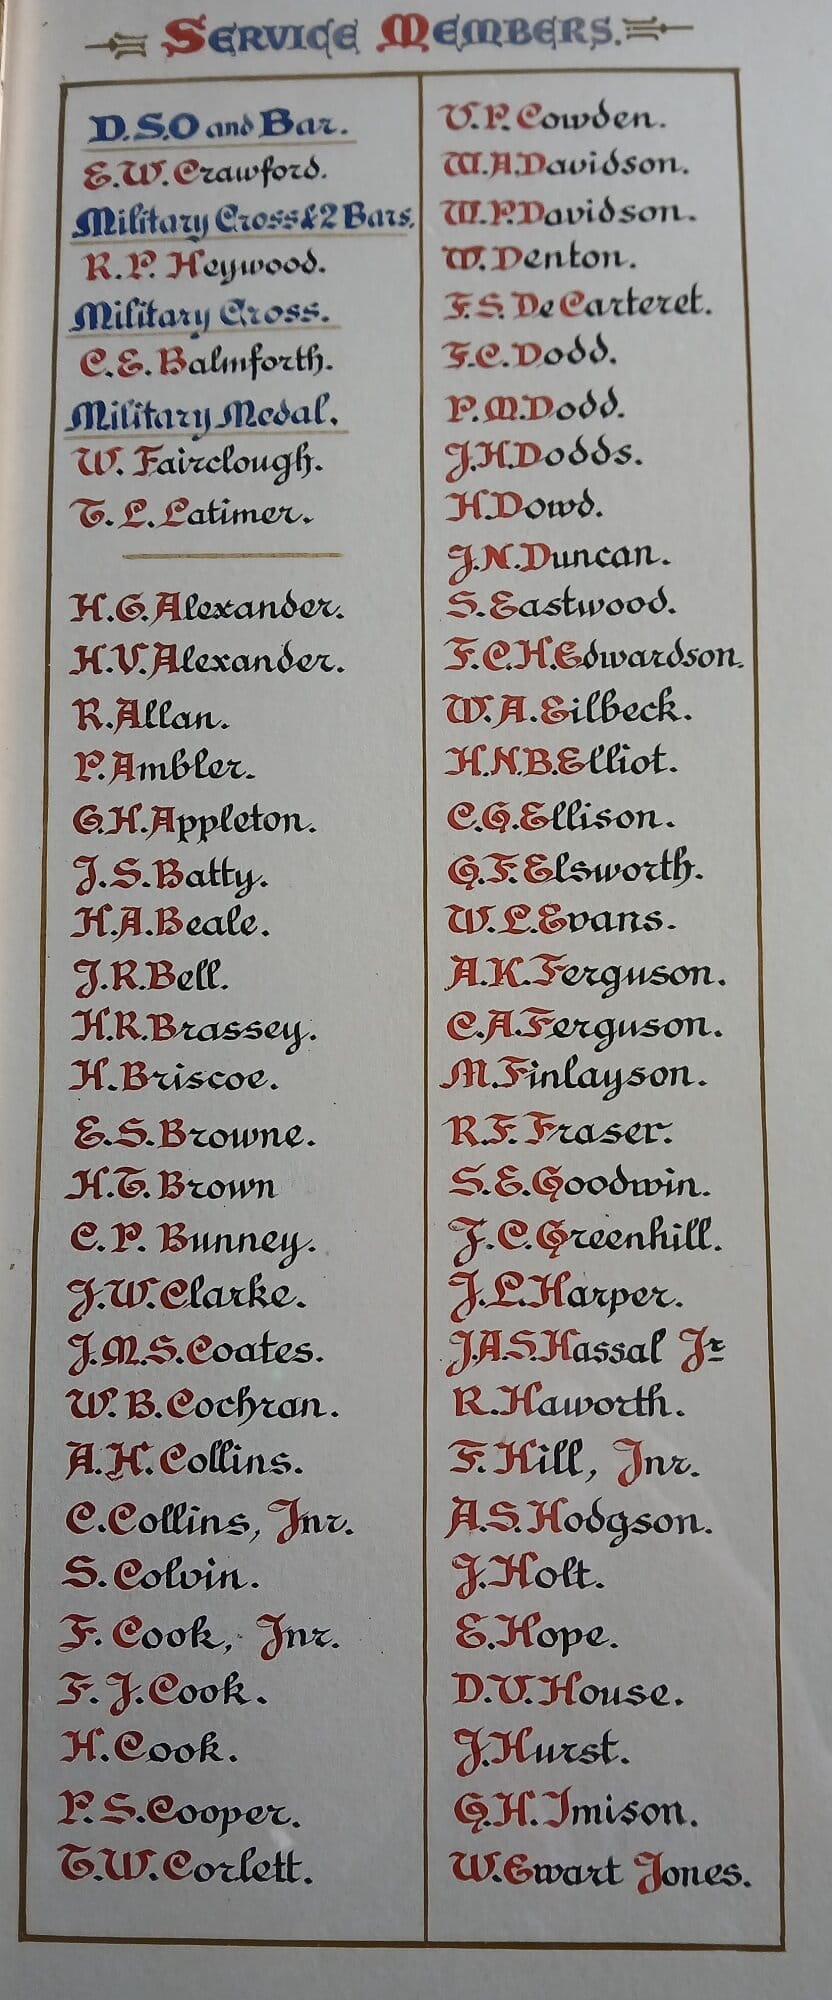 Service Members.
D.S.O and Bar.
E.W. Crawford.
Military Cross & 2 Bars.
R.P. Heywood.
Military Cross.
C.E. Balmforth.
Military Medal.
W. Fairclough.
T.L. Latimer.
H.G. Alexander.
H.V. Alexander.
R. Allan.
P. Ambler.
G.H. Appleton.
J.S. Batty.
H.A. Beale.
J.R. Bell.
H.R. Brassey.
H. Briscoe.
E.S. Browne.
H.T. Brown
C.P. Bunney.
J.W. Clarke.
J.M.S. Coates.
W.B. Cochran.
A.H. Collins.
C. Collins, Jnr.
S. Colvin.
F. Cook, Jnr.
F.J. Cook.
H. Cook.
P.S. Cooper.
T.W. Corlett.
V.P. Cowden.
W.A. Davidson.
W.P. Davidson.
W. Denton.
F.S. De Carteret.
F.C. Dodd.
P.M. Dodd.
J.H. Dodds.
H. Dowd.
J.N. Duncan.
S. Eastwood.
F.C.H. Edwardson.
W.A. Eilbeck.
H.N.B. Elliot.
C.G. Ellison.
G.F. Elsworth.
W.L. Evans.
A.K. Ferguson.
C.A. Ferguson.
M. Finlayson.
R.F. Fraser.
S.E. Goodwin.
J.C. Greenhill.
J.L. Harper.
J.A.S. Hassal Jr
R. Haworth.
F. Hill, Jnr.
A.S. Hodgson.
J. Holt.
E. Hope.
D.V. House.
J. Hurst.
G.H. Imison.
W. Ewart Jones.